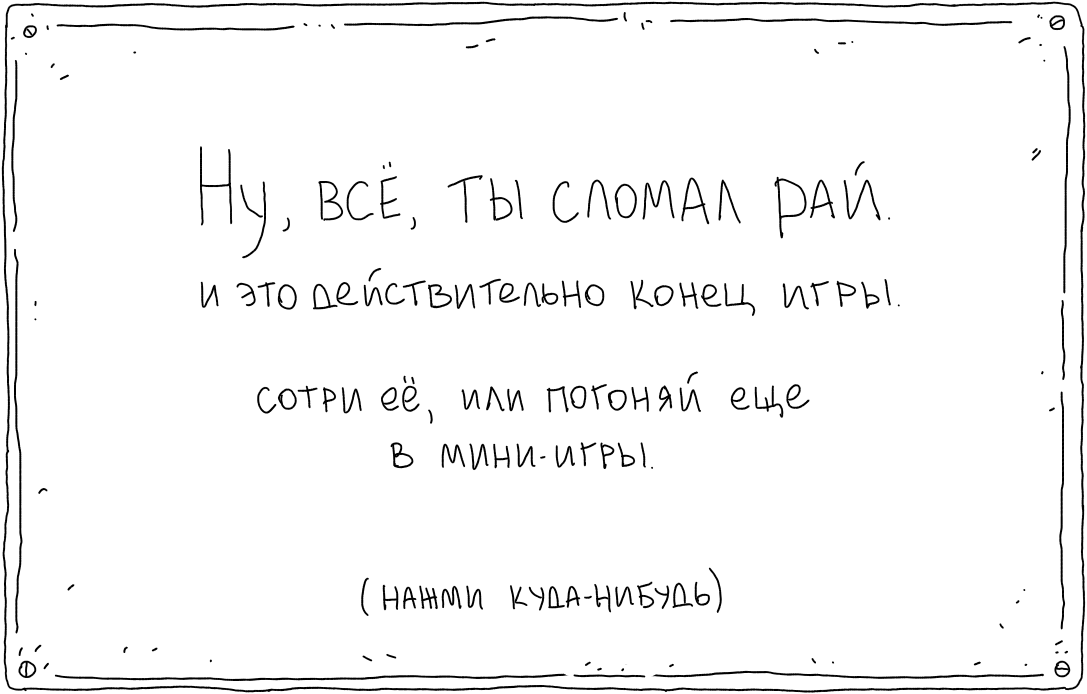 Ну, всё, ты сломал рай.
и это действительно конец игры.
сотри её, или погоняй еще
в мини-игры.
(нажми куда-нибудь)